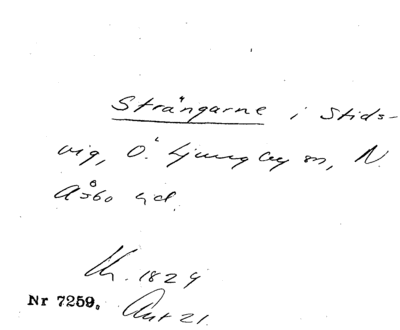 Strängarne i Stids-
vig, Ö. Ljungby sn, N.
Åsbo hd.
Kh. 1829
Nr 7259.
Ant 21.